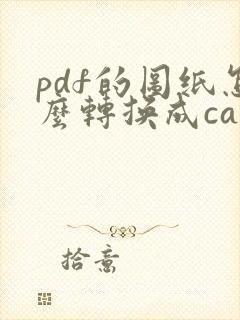 pdf的图纸怎
麼轉换成ca
拾意